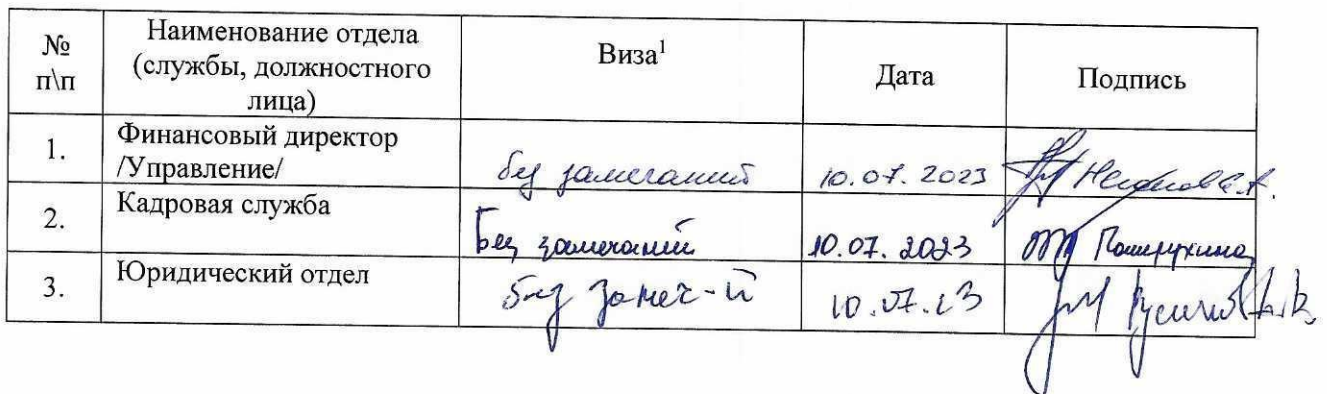 № п\п
Наименование отдела (службы, должностного лица)
Виза¹
Дата
Подпись
1.
Финансовый директор
/Управление/
без замечаний
10.07.2023
2.
Кадровая служба
Без замечаний
10.07.2023
3.
Юридический отдел
без замеч-й
10.07.23